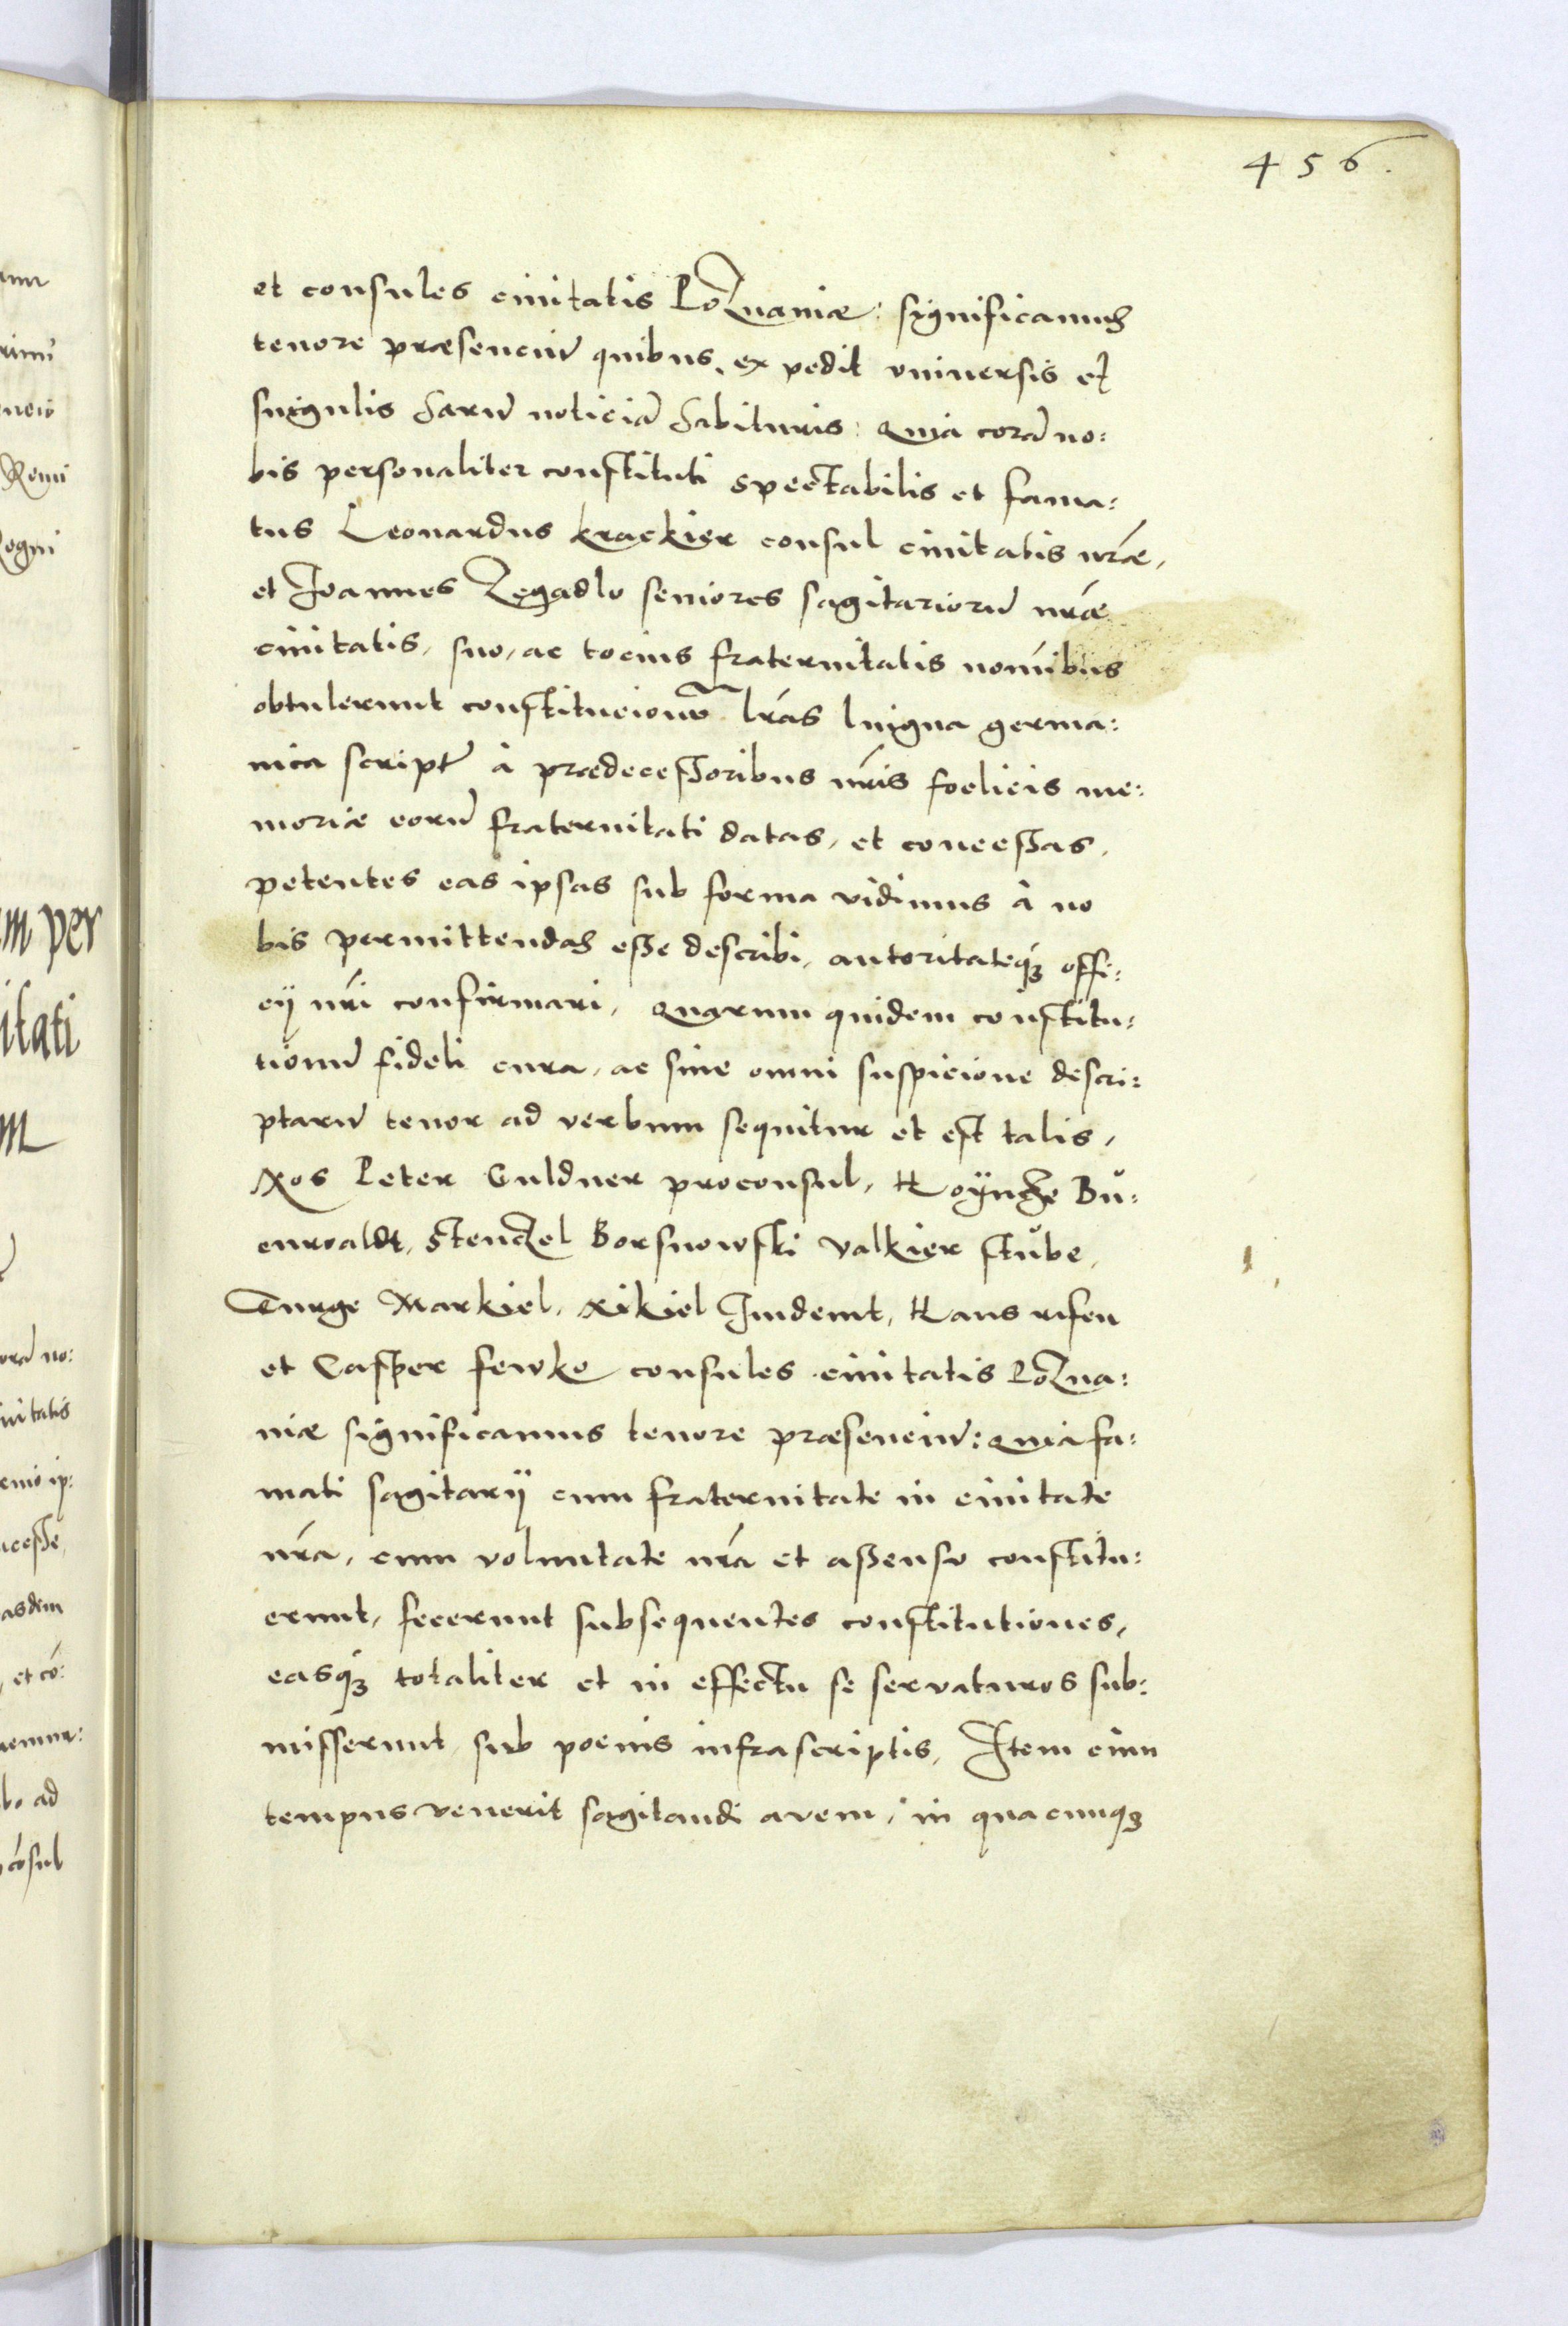 456.
et consules ciuitatis Poznaniæ: significamus
tenore præsenciũ quibus expedit vniuersis et
singulis harũ noticiã habituris: Quia corã no:
bis personaliter constituti spectabilis et fama:
tus Leonardus krackier consul ciuitatis nr̃æ,
et Joannes Zegadlo seniores sagitariorũ nr̃æ
ciuitatis, suo, ac tocius fraternitatis nomi̅bus
obtulerunt constitucionũ lr̃as lingua germa:
nica script à prædecessoribus nr̃is foelicis me:
moriæ eorũ fraternitati datas, et concessas,
petentes eas ipsas sub forma vidimus à no
bis permittendas esse describi, autoritateq́ꝫ offi:
cij nr̃i confirmari, Quarum quidem constitu:
tionũ fideli cura, ac sine omni suspicione descri:
ptarũ tenor ad verbum sequitur et est talis,
Nos Peter Guldner proconsul, Hoÿncze Bů:
enwaldt, Stenczel Borsnowski valkier stůbe,
Turge Markiel, Nikiel Jndemt, Hans risen
et Casper fewke consules ciuitatis Pozna:
niæ significamus tenore præsenciũ: Quia fa:
mati sagitarij cum fraternitate in ciuitate
nr̃a, cum voluntate nr̃a et assensu constitu:
erunt, fecerunt subsequentes constitutiones,
easq́ꝫ totaliter et in effectu se servaturos sub:
misserunt sub poenis infrascriptis, Item cum
tempus venerit sagitandi avem, in quacunqꝫ